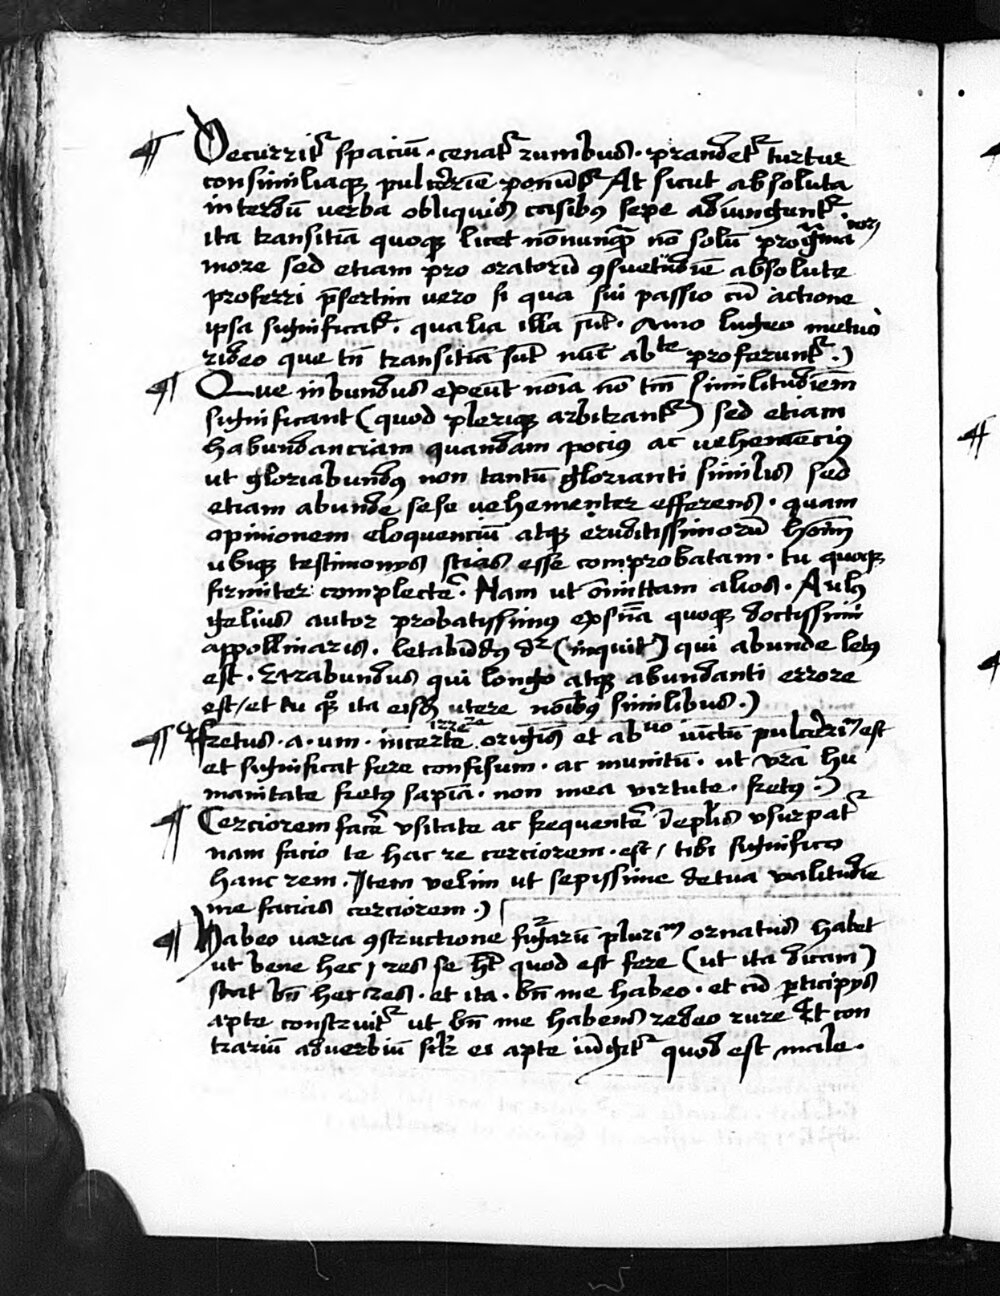 ¶ Decurrit᷑ spaciū · cenat᷑ rumbus · prandet᷑ turtur
consimiliaqꝫ pulcerrīe ponūt᷑ At sicut absoluta
interdū verba obliquis casibꝯ sepe adiungunt᷑ ·
ita transitīa quoqꝫ licet nōnunqꝫ̄ nō solū pro
more sed etiam pro oratorū ꝯsuetudīe absolute
proferri p̄sertim vero si qua sui passio cū actione
ipsa significat᷑ · qualia illa sūt · Amo lugeo metuo
rideo que tn̄ transitīa sūt nūc abᵗᵉ proferunt᷑ ·)
¶ Que in bundus exeūt nōia nō tm̄ similitudīem
significant (quod pleriqꝫ arbitrant᷑) sed etiam
habundanciam quandam pociꝯ ac vehemēciꝯ
ut gloriabundꝯ non tantū glorianti similis sed
etiam abunde sese vehementer efferens · quam
opinionem eloquenciū atqꝫ eruditissimorū hoīm
ubiqꝫ testimonijs scias esse comprobatam · tu quoqꝫ
firmiter complecte᷑ · Nam ut omittam alios · Aulꝯ
gelius autor probatissimꝯ ex sn̄ia quoqꝫ doctissimi
appollinaris · letabūdꝯ dr̄ (inquit) qui abunde letꝯ
est · Errabundus qui longo atqꝫ abundanti errore
est / et tu qꝫ ita eisd̄ utere noībꝯ similibus ·)
¶ Fretus · a · um · incerte originis et abᵛᵒ iūctū pulcerriᵐ est
et significat fere confisum · ac munitū · ut vr̄a hu
manitate fretꝯ sapīa · non mea virtute · fretꝯ ·)
¶ Cerciorem facē usitate ac frequentē deplis usurpat᷑
nam facio te hac re cerciorem · est / tibi significo
hanc rem · Item velim ut sepissime de tua valitudīe
me facias cerciorem ·)
¶ Habeo varia ꝯstructione figurarū pluriᵐ ornatus habet
ut bene hec res se hꝫ quod est fere (ut ita dicam)
stat bn̄ hec res · et ita · bn̄ me habeo · et cū p̄ticipijs
apte construit᷑ ut bn̄ me habens redeo rure Et con
trariū adverbiū silr̄ ei apte iūgit᷑ quod est male ·